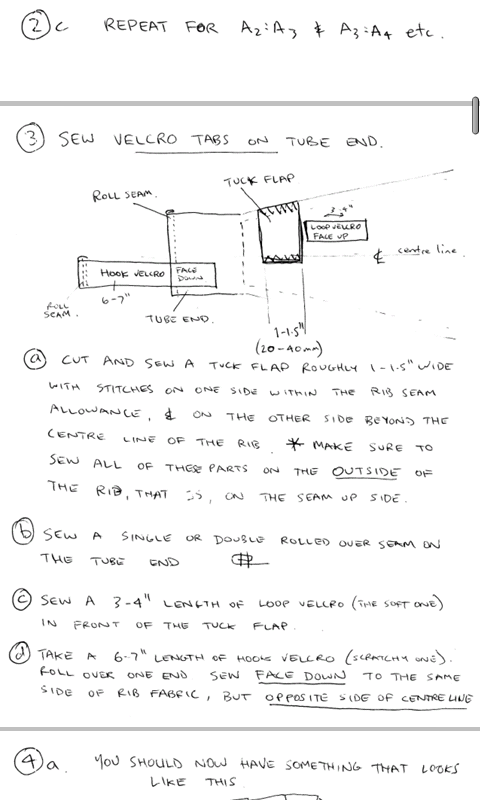 ② c REPEAT FOR A2:A3 & A3:A4 etc.
③ SEW VELCRO TABS ON TUBE END.
TUCK FLAP
ROLL SEAM.
3-4"
LOOP VELCRO
FACE UP
℄ centre line.
HOOK VELCRO
FACE
DOWN
6-7"
ROLL
SEAM.
TUBE END.
1-1.5"
(20-40mm)
ⓐ CUT AND SEW A TUCK FLAP ROUGHLY 1-1.5" WIDE
WITH STITCHES ON ONE SIDE WITHIN THE RIB SEAM
ALLOWANCE, & ON THE OTHER SIDE BEYOND THE
CENTRE LINE OF THE RIB. * MAKE SURE TO
SEW ALL OF THESE PARTS ON THE OUTSIDE OF
THE RIB, THAT IS, ON THE SEAM UP SIDE.
ⓑ SEW A SINGLE OR DOUBLE ROLLED OVER SEAM ON
THE TUBE END
ⓒ SEW A 3-4" LENGTH OF LOOP VELCRO (THE SOFT ONE)
IN FRONT OF THE TUCK FLAP.
ⓓ TAKE A 6-7" LENGTH OF HOOK VELCRO (SCRATCHY ONE).
ROLL OVER ONE END SEW FACE DOWN TO THE SAME
SIDE OF RIB FABRIC, BUT OPPOSITE SIDE OF CENTRELINE
④ a. YOU SHOULD NOW HAVE SOMETHING THAT LOOKS
LIKE THIS